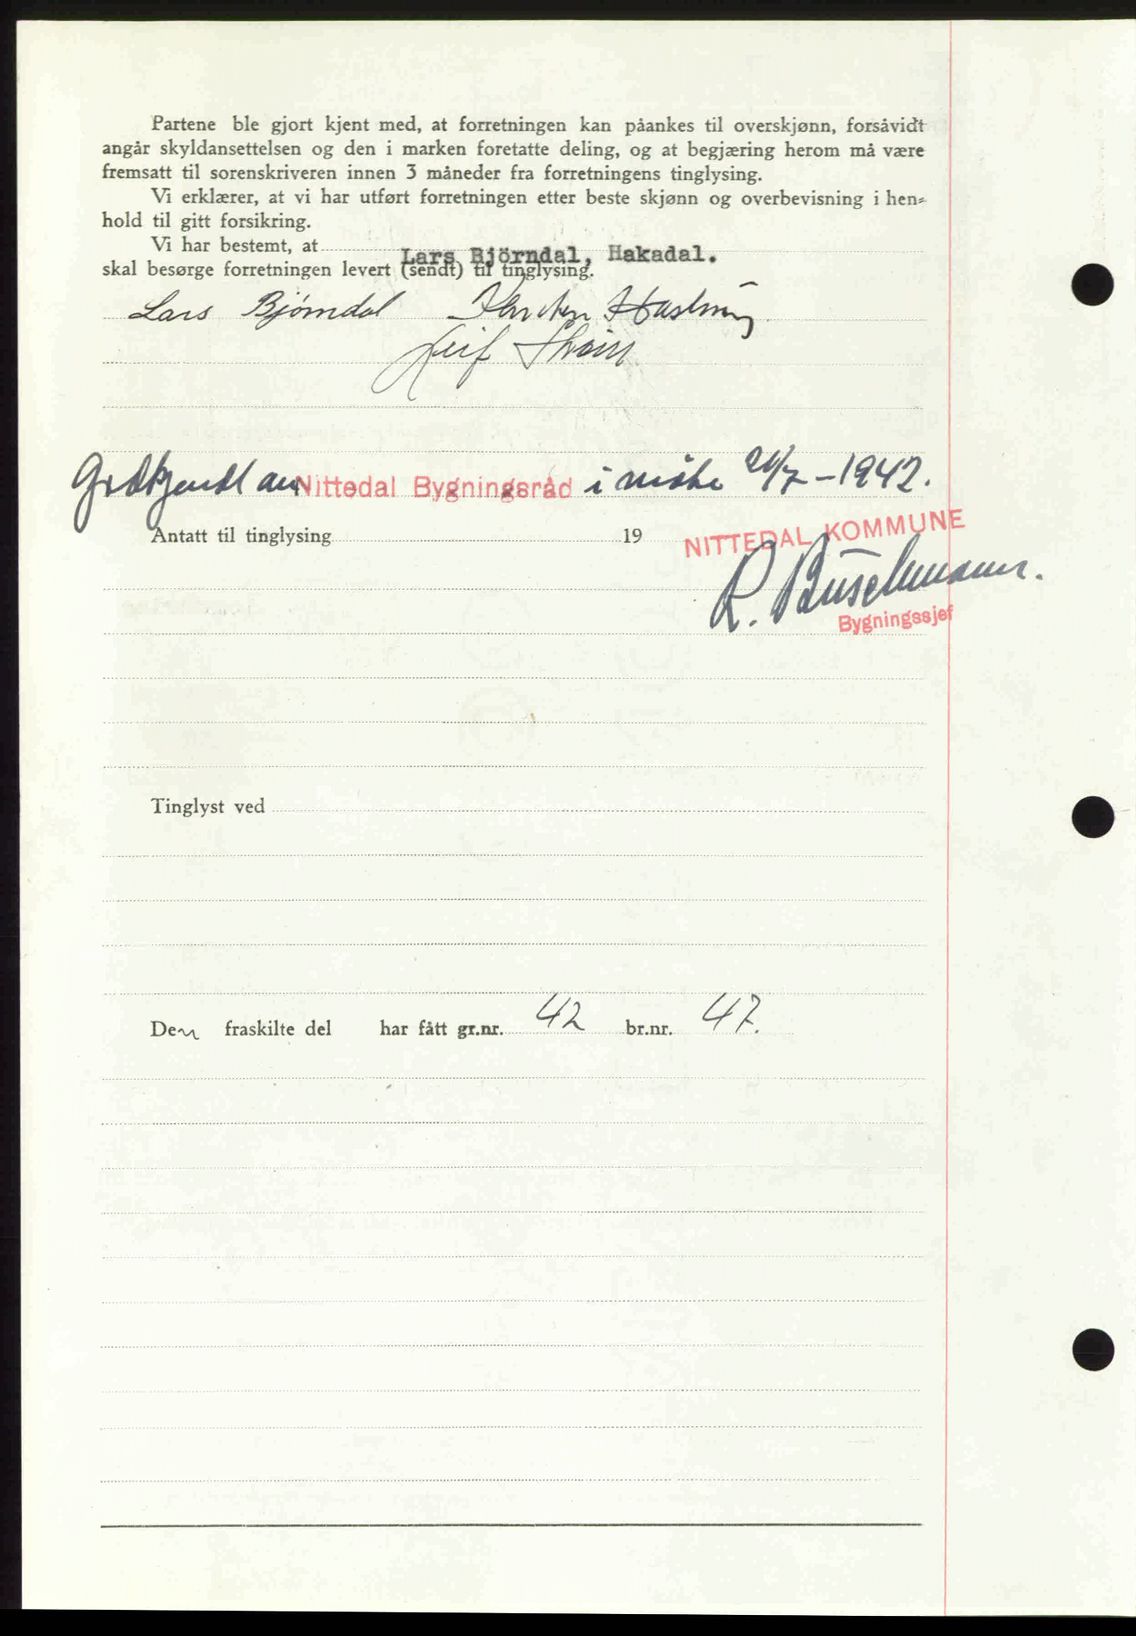 Partene ble gjort kjent med, at forretningen kan påankes til overskjønn, forsåvidt
angår skyldansettelsen og den i marken foretatte deling, og at begjæring herom må være
fremsatt til sorenskriveren innen 3 måneder fra forretningens tinglysing.
Vi erklærer, at vi har utført forretningen etter beste skjønn og overbevisning i hen-
hold til gitt forsikring.
Vi har bestemt, at Lars Björndal, Hakadal.
skal besørge forretningen levert (sendt) til tinglysing.
Lars Bjørndal
Leif
Godkjendt av Nittedal Bygningsråd i møte /7-1942.
Antatt til tinglysing 19
NITTEDAL KOMMUNE
R. Buschmann.
Bygningssjef
Tinglyst ved
Den fraskilte del har fått gr.nr. 42 br.nr. 47.